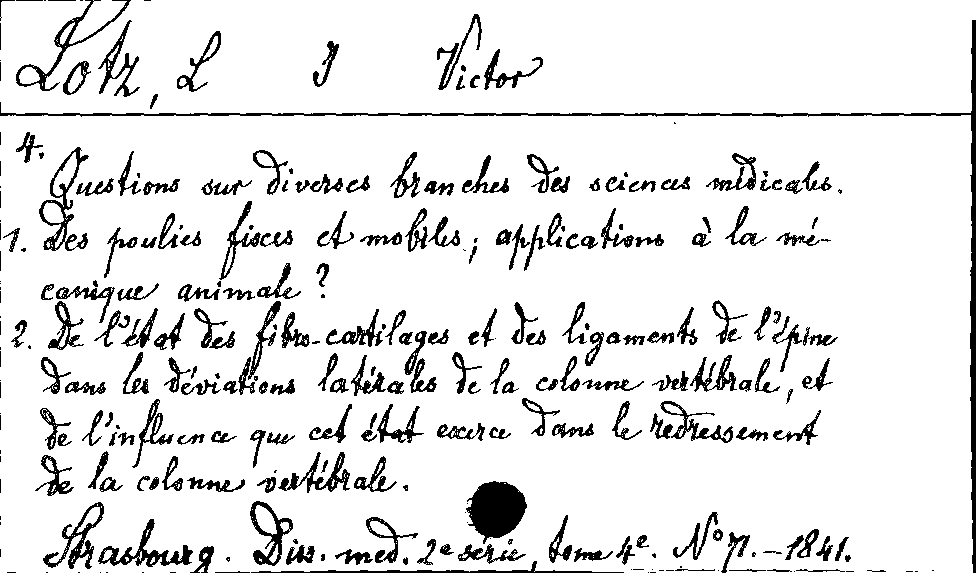 Lotz, L J Victor
4.
Questions sur diverses branches des sciences médicales.
1. Des poulies fixes et mobiles; applications à la mé-
canique animale?
2. De l'état des fibro-cartilages et des ligaments de l'épine
dans les déviations latérales de la colonne vertébrale, et
de l'influence que cet état exerce dans le redressement
de la colonne vertébrale.
Strasbourg. Diss. med. 2e série, tome 4e. No 71. - 1841.